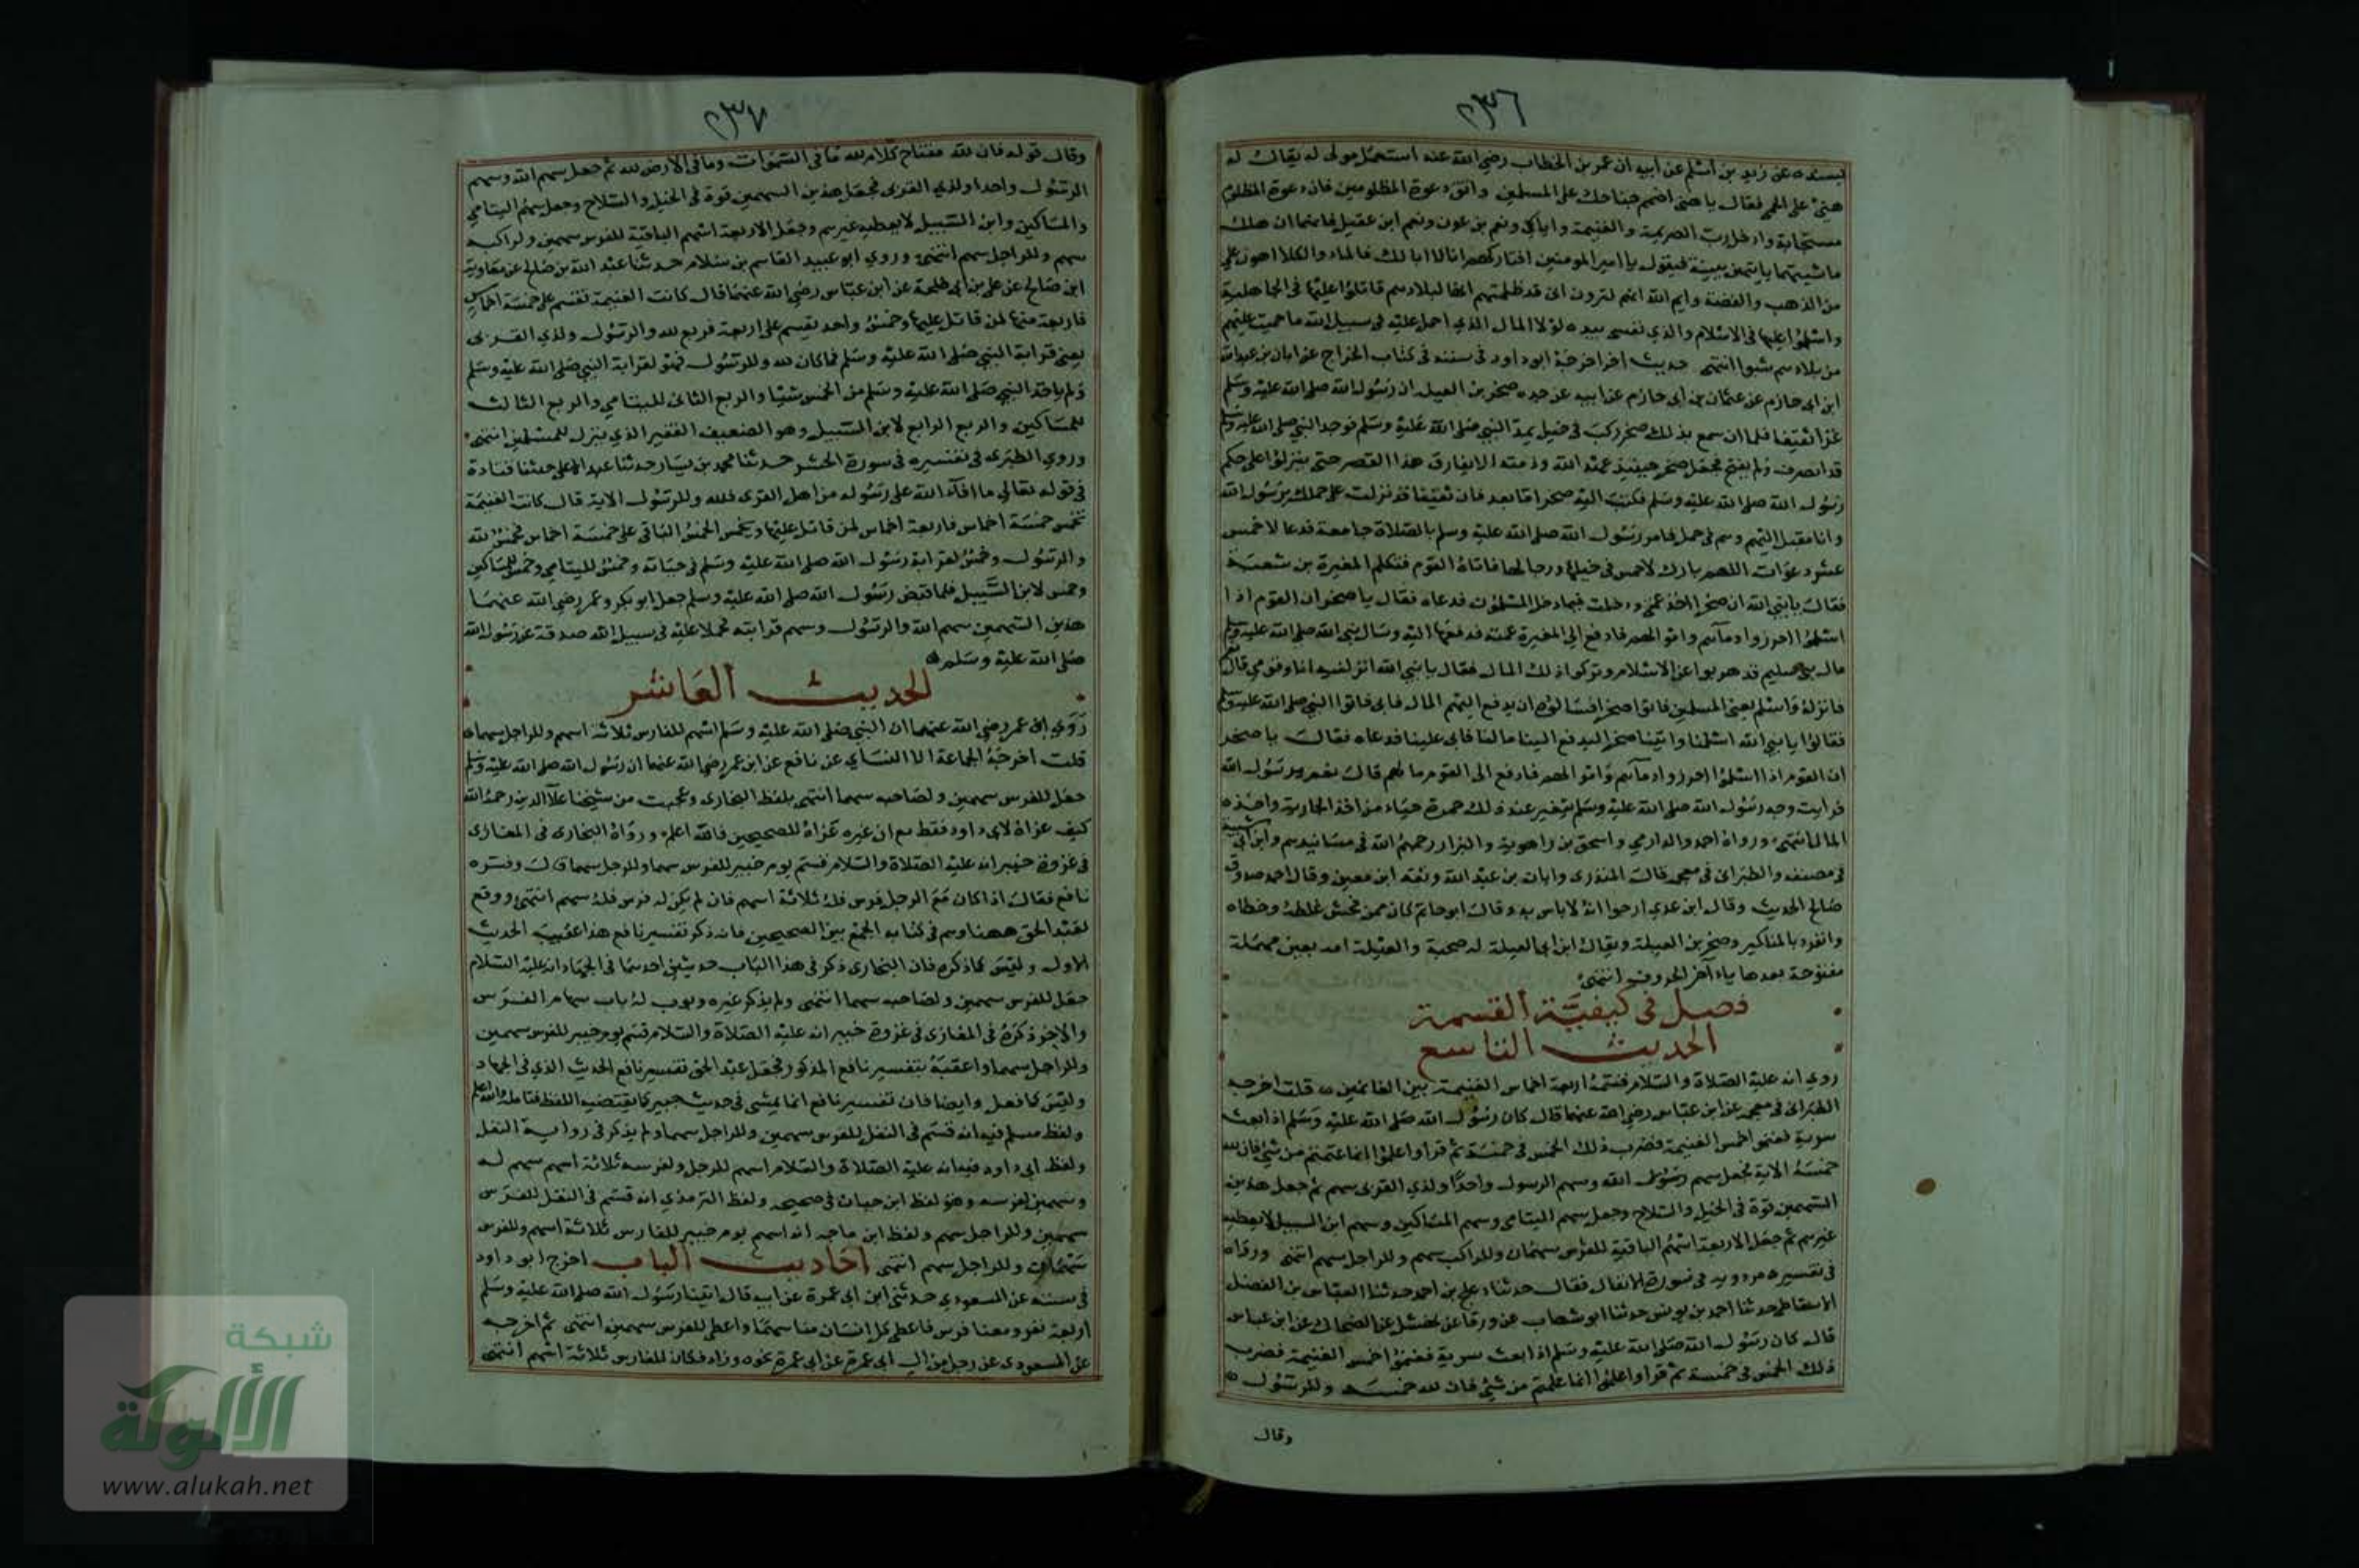 ٢٣٦
بسنده عن زيد بن أسلم عن أبيه ان عمر بن الخطاب رضي الله عنه استعمل مولى له يقال له
هني على الحمى فقال يا هني اضمم جناحك على المسلمين واتق دعوة المظلومين فان دعوة المظلوم
مستجابة وادخل رب الصريمة والغنيمة واياي ونعم بن عون ونعم ابن عفيل فانهما ان هلك
ماشيتهما ياتيني ببينة فيقول يا امير المومنين افتاركهم انا لا ابا لك فالماء والكلا اهون علي
من الذهب والفضة وايم الله انهم لترون اني قد ظلمتهم انها لبلادهم قاتلوا عليها في الجاهلية
واسلموا عليها في الاسلام والذي نفسي بيده لولا المال الذي احمل عليه في سبيل الله ما حميت عليهم
من بلادهم شبرا انتهى حديث اخر اخرجه ابو داود في سننه في كتاب الخراج عن ابان بن عبد الله
ابن ابي حازم عن عثمان بن ابي حازم عن ابيه عن جده صخر بن العيلة ان رسول الله صلى الله عليه وسلم
غزا ثقيفا فلما ان سمع بذلك صخر ركب في خيل يمد النبي صلى الله عليه وسلم فوجد النبي صلى الله عليه وسلم
قد انصرف ولم يفتح فجعل صخر حينيذ عهد الله وذمته الا يفارق هذا القصر حتى ينزلوا على حكم
رسول الله صلى الله عليه وسلم فكتب اليه صخر اما بعد فان ثقيفا قد نزلت على حكمك يرسول الله
وانا مقبل اليهم وهم في خيل فامر رسول الله صلى الله عليه وسلم بالصلاة جامعة فدعا لاحمس
عشر دعوات اللهم بارك لاحمس في خيلها ورجالها فاتاه القوم فتكلم المغيرة بن شعبة
فقال يا نبي الله ان صخرا اخذ عمتي ودخلت فيما دخل المسلمون فدعاه فقال يا صخر ان القوم اذا
اسلموا احرزوا دماهم واموالهم فادفع الى المغيرة عمته فدفعها اليه وسال نبي الله صلى الله عليه وسلم
مال بني سليم قد هربوا عن الاسلام وتركوا ذلك المال فقال يا نبي الله انزلنيه انا وقومي قال نعم
فانزله واسلم يعني المسلمين فاتوا صخرا فسالوه ان يدفع اليهم المال فابى فاتوا النبي صلى الله عليه وسلم
فقالوا يا نبي الله اسلمنا واتينا صخرا ليدفع الينا مالنا فابى علينا فدعاه فقال يا صخر
ان القوم اذا اسلموا احرزوا دماهم واموالهم فادفع الى القوم مالهم قال نعم يرسول الله
فرايت وجه رسول الله صلى الله عليه وسلم يتغير عند ذلك حمرة حياء من اخذه الجارية واخذه
المال انتهى ورواه احمد والدارمي واسحق بن راهويه والبزار رحمهم الله في مسانيدهم وابن ابي شيبة
في مصنفه والطبراني في معجمه قال المنذري وابان بن عبد الله وثقه ابن معين وقال احمد صدوق
صالح الحديث وقال ابن عدي ارجوا انه لا باس به وقال ابو حاتم كان ممن فحش غلطه وخطاه
وانفرد بالمناكير وصخر بن العيلة ويقال ابن ابي العيلة له صحبة والعيلة امه بعين مهملة
مفتوحة بعدها ياء آخر الحروف انتهى
فصل في كيفية القسمة
الحديث التاسع
روي انه عليه الصلاة والسلام قسم اربعة اخماس الغنيمة بين الغانمين قلت اخرجه
الطبراني في معجمه عن ابن عباس رضي الله عنهما قال كان رسول الله صلى الله عليه وسلم اذا بعث
سرية فغنموا خمس الغنيمة فضرب ذلك الخمس في خمسة ثم قرا واعلموا انما غنمتم من شيء فان لله
خمسه الاية فجعل سهم رسول الله وسهم الرسول واحدا ولذي القربى سهم ثم جعل هذين
السهمين قوة في الخيل والسلاح وجعل سهم اليتامى وسهم المساكين وسهم ابن السبيل لا يعطيه
غيرهم ثم جعل الاربعة اسهم الباقية للفرس سهمان وللراكب سهم وللراجل سهم انتهى ورواه
في تفسيره مردويه في سورة الانفال فقال حدثنا دعلج بن احمد حدثنا العباس بن الفضل
الاسقاطي حدثنا احمد بن يونس حدثنا ابو شهاب عن ورقاء عن نهشل عن الضحاك عن ابن عباس
قال كان رسول الله صلى الله عليه وسلم اذا بعث سرية فغنموا خمس الغنيمة فضرب
ذلك الخمس في خمسة ثم قرا واعلموا انما غنمتم من شيء فان لله خمسه وللرسول
وقال
٢٣٧
وقال قوله فان لله مفتاح كلام لله ما في السموات وما في الارض لله ثم جعل سهم الله وسهم
الرسول واحدا ولذي القربى فجعل هذين السهمين قوة في الخيل والسلاح وجعل سهم اليتامى
والمساكين وابن السبيل لا يعطيه غيرهم وجعل الاربعة اسهم الباقية للفرس سهمين ولراكبه
سهم وللراجل سهم انتهى وروي ابو عبيد القاسم بن سلام حدثنا عبد الله بن صالح عن معاوية
ابن صالح عن علي بن ابي طلحة عن ابن عباس رضي الله عنهما قال كانت الغنيمة تقسم على خمسة اخماس
فاربعة منها لمن قاتل عليها وخمس واحد يقسم على اربعة فربع لله والرسول ولذي القربى
يعني قرابة النبي صلى الله عليه وسلم فما كان لله وللرسول فهو لقرابة النبي صلى الله عليه وسلم
ولم ياخذ النبي صلى الله عليه وسلم من الخمس شيئا والربع الثاني لليتامى والربع الثالث
للمساكين والربع الرابع لابن السبيل وهو الضعيف الفقير الذي ينزل للمسلمين انتهى
وروي الطبري في تفسيره في سورة الحشر حدثنا محمد بن بشار حدثنا عبد الاعلى حدثنا قتادة
في قوله تعالى ما افآء الله على رسوله من اهل القرى فلله وللرسول الاية قال كانت الغنيمة
تخمس خمسة اخماس فاربعة اخماس لمن قاتل عليها ويخمس الخمس الباقي على خمسة اخماس فخمس لله
والرسول وخمس لقرابة رسول الله صلى الله عليه وسلم في حياته وخمس لليتامى وخمس للمساكين
وخمس لابن السبيل فلما قبض رسول الله صلى الله عليه وسلم جعل ابو بكر وعمر رضي الله عنهما
هذين السهمين سهم الله والرسول وسهم قرابته فحملا عليه في سبيل الله صدقة عن رسول الله
صلى الله عليه وسلم
الحديث العاشر
روي ابن عمر رضي الله عنهما ان النبي صلى الله عليه وسلم اسهم للفارس ثلاثة اسهم وللراجل سهما
قلت اخرجه الجماعة الا النساي عن نافع عن ابن عمر رضي الله عنهما ان رسول الله صلى الله عليه وسلم
جعل للفرس سهمين ولصاحبه سهما انتهى بلفظ البخاري وعجبت من شيخنا علآ الدين رحمه الله
كيف عزاه لابي داود فقط مع ان غيره عزاه للصحيحين فالله اعلم ورواه البخاري في المغازي
في غزوة خيبر انه عليه الصلاة والسلام قسم يوم خيبر للفرس سهما وللرجل سهما قال وفسره
نافع فقال اذا كان مع الرجل فرس فله ثلاثة اسهم فان لم يكن له فرس فله سهم انتهى ووقع
لعبد الحق ههنا وهم في كتابه الجمع بين الصحيحين فانه ذكر تفسير نافع هذا عقيب الحديث
الاول وليس كما ذكره فان البخاري ذكر في هذا الباب حديثين احدهما في الجهاد انه عليه السلام
جعل للفرس سهمين ولصاحبه سهما انتهى ولم يذكر غيره وبوب له باب سهام الفرس
والاخر ذكره في المغازي في غزوة خيبر انه عليه الصلاة والسلام قسم يوم خيبر للفرس سهمين
وللراجل سهما واعقبه بتفسير نافع المذكور فجعل عبد الحق تفسير نافع الحديث الذي في الجهاد
وليس كما فعل وايضا فان تفسير نافع انما يمشي في حديث خيبر كما يقتضيه اللفظ فتامله والله اعلم
ولفظ مسلم فيه انه قسم في النفل للفرس سهمين وللراجل سهما ولم يذكر في رواية النفل
ولفظ ابي داود فيه انه عليه الصلاة والسلام اسهم للرجل ولفرسه ثلاثة اسهم سهم له
وسهمين لفرسه وهو لفظ ابن حبان في صحيحه ولفظ الترمذي انه قسم في النفل للفرس
سهمين وللراجل سهم ولفظ ابن ماجه انه اسهم يوم خيبر للفارس ثلاثة اسهم وللفرس
سهمان وللراجل سهم انتهى احاديث الباب اخرج ابو داود
في سننه عن المسعودي حدثني ابن ابي عمرة عن ابيه قال اتينا رسول الله صلى الله عليه وسلم
اربعة نفر ومعنا فرس فاعطى كل انسان منا سهما واعطى للفرس سهمين انتهى ثم اخرجه
عن المسعودي عن رجل من ال ابي عمرة عن ابي عمرة نحوه وزاد فكان للفارس ثلاثة اسهم انتهى
شبكة
الألوكة
www.alukah.net